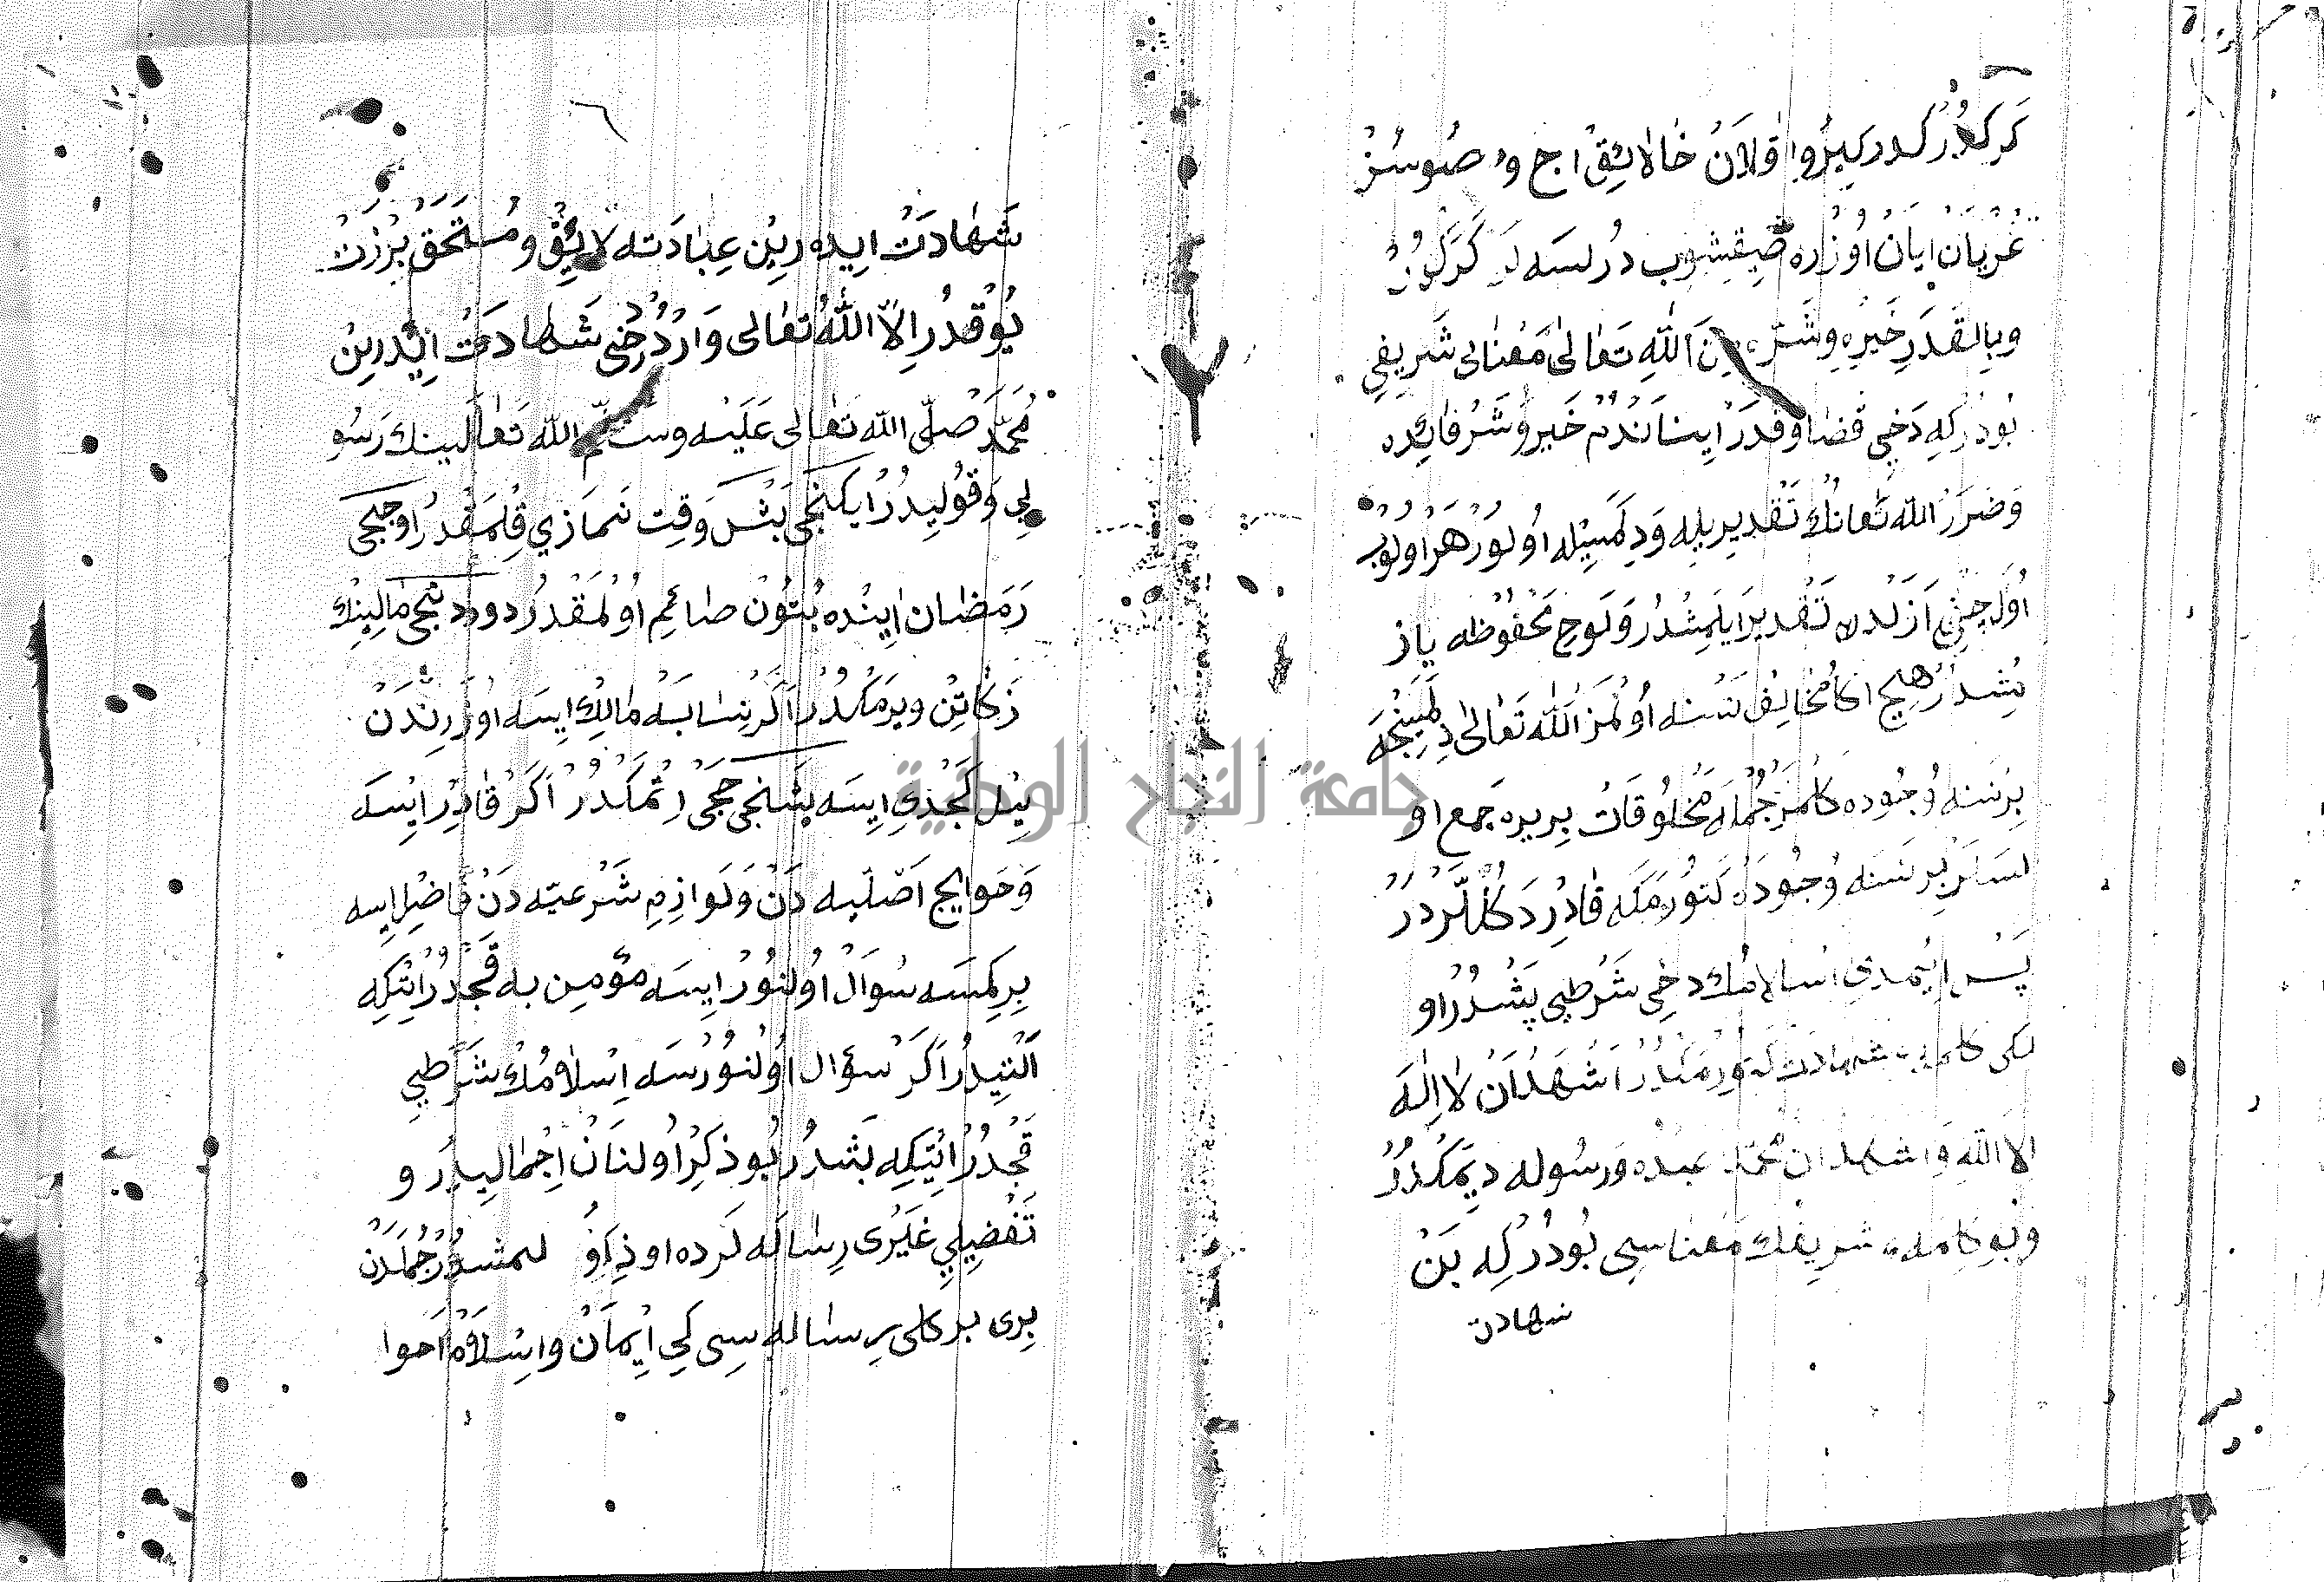 كركلردر كيرو اقلان خلايق اج و صوسز
عريان ايان اوزره صيقشوب درلسه لر كركدر
وبالقدر خيره وشره من الله تعالى معنالى شريفي
بودركه دخي قضا وقدر ايناندم خير وشر فائده
وضرر الله تعانك تقديريله ودلمسيله اولور هر اولوب
اول جق ازلده تقدير ايلمشدر ولوح محفوظه ياز
مشدر هيچ اكا مخالف نسنه اولمز الله تعالى دلمينجه
بر نسنه وجوده كلمز جمله مخلوقات بريره جمع او
لسلر بر نسنه وجوده كتورمكه قادر دكللردر
پس ايمدي اسلامك دخي شرطي بشدر او
لكي كلمه شهادت كتورمكدر اشهد ان لا اله
الا الله و اشهد ان محمد عبده ورسوله ديمكدر
وبو كلمه شريفك معناسي بودركه بن
شهادت
٦
شهادت ايده رين عبادته لايق ومستحق برزات
يوقدر الا الله تعالى واردر دخي شهادت ايدرين
محمد صلى الله تعالى عليه وسلم الله تعالينك رسو
لي وقوليدر ايكنجي بش وقت نمازي قلمقدر اوچنجي
رمضان اينده بتون صائم اولمقدر دوردنجي مالينك
زكاتن ويرمكدر اكر نسابه مالك ايسه اوزرندن
ييل كچدي ايسه بشنجي حجي اتمكدر اكر قادر ايسه
وحوايج اصليه دن ولوازم شرعيه دن فاضل ايسه
بر كمسه سوال اولنور ايسه مؤمن به قچدر ايتكه
التيدر اكر سؤال اولنورسه اسلامك شرطي
قچدر ايتكه بشدر بو ذكر اولنان اجماليدر و
تفضيلي غيرى رساله لرده او ذكر لمشدر جمله دن
برى بركلى رساله سي كي ايمان واسلام احوا
جامعة النجاح الوطنية